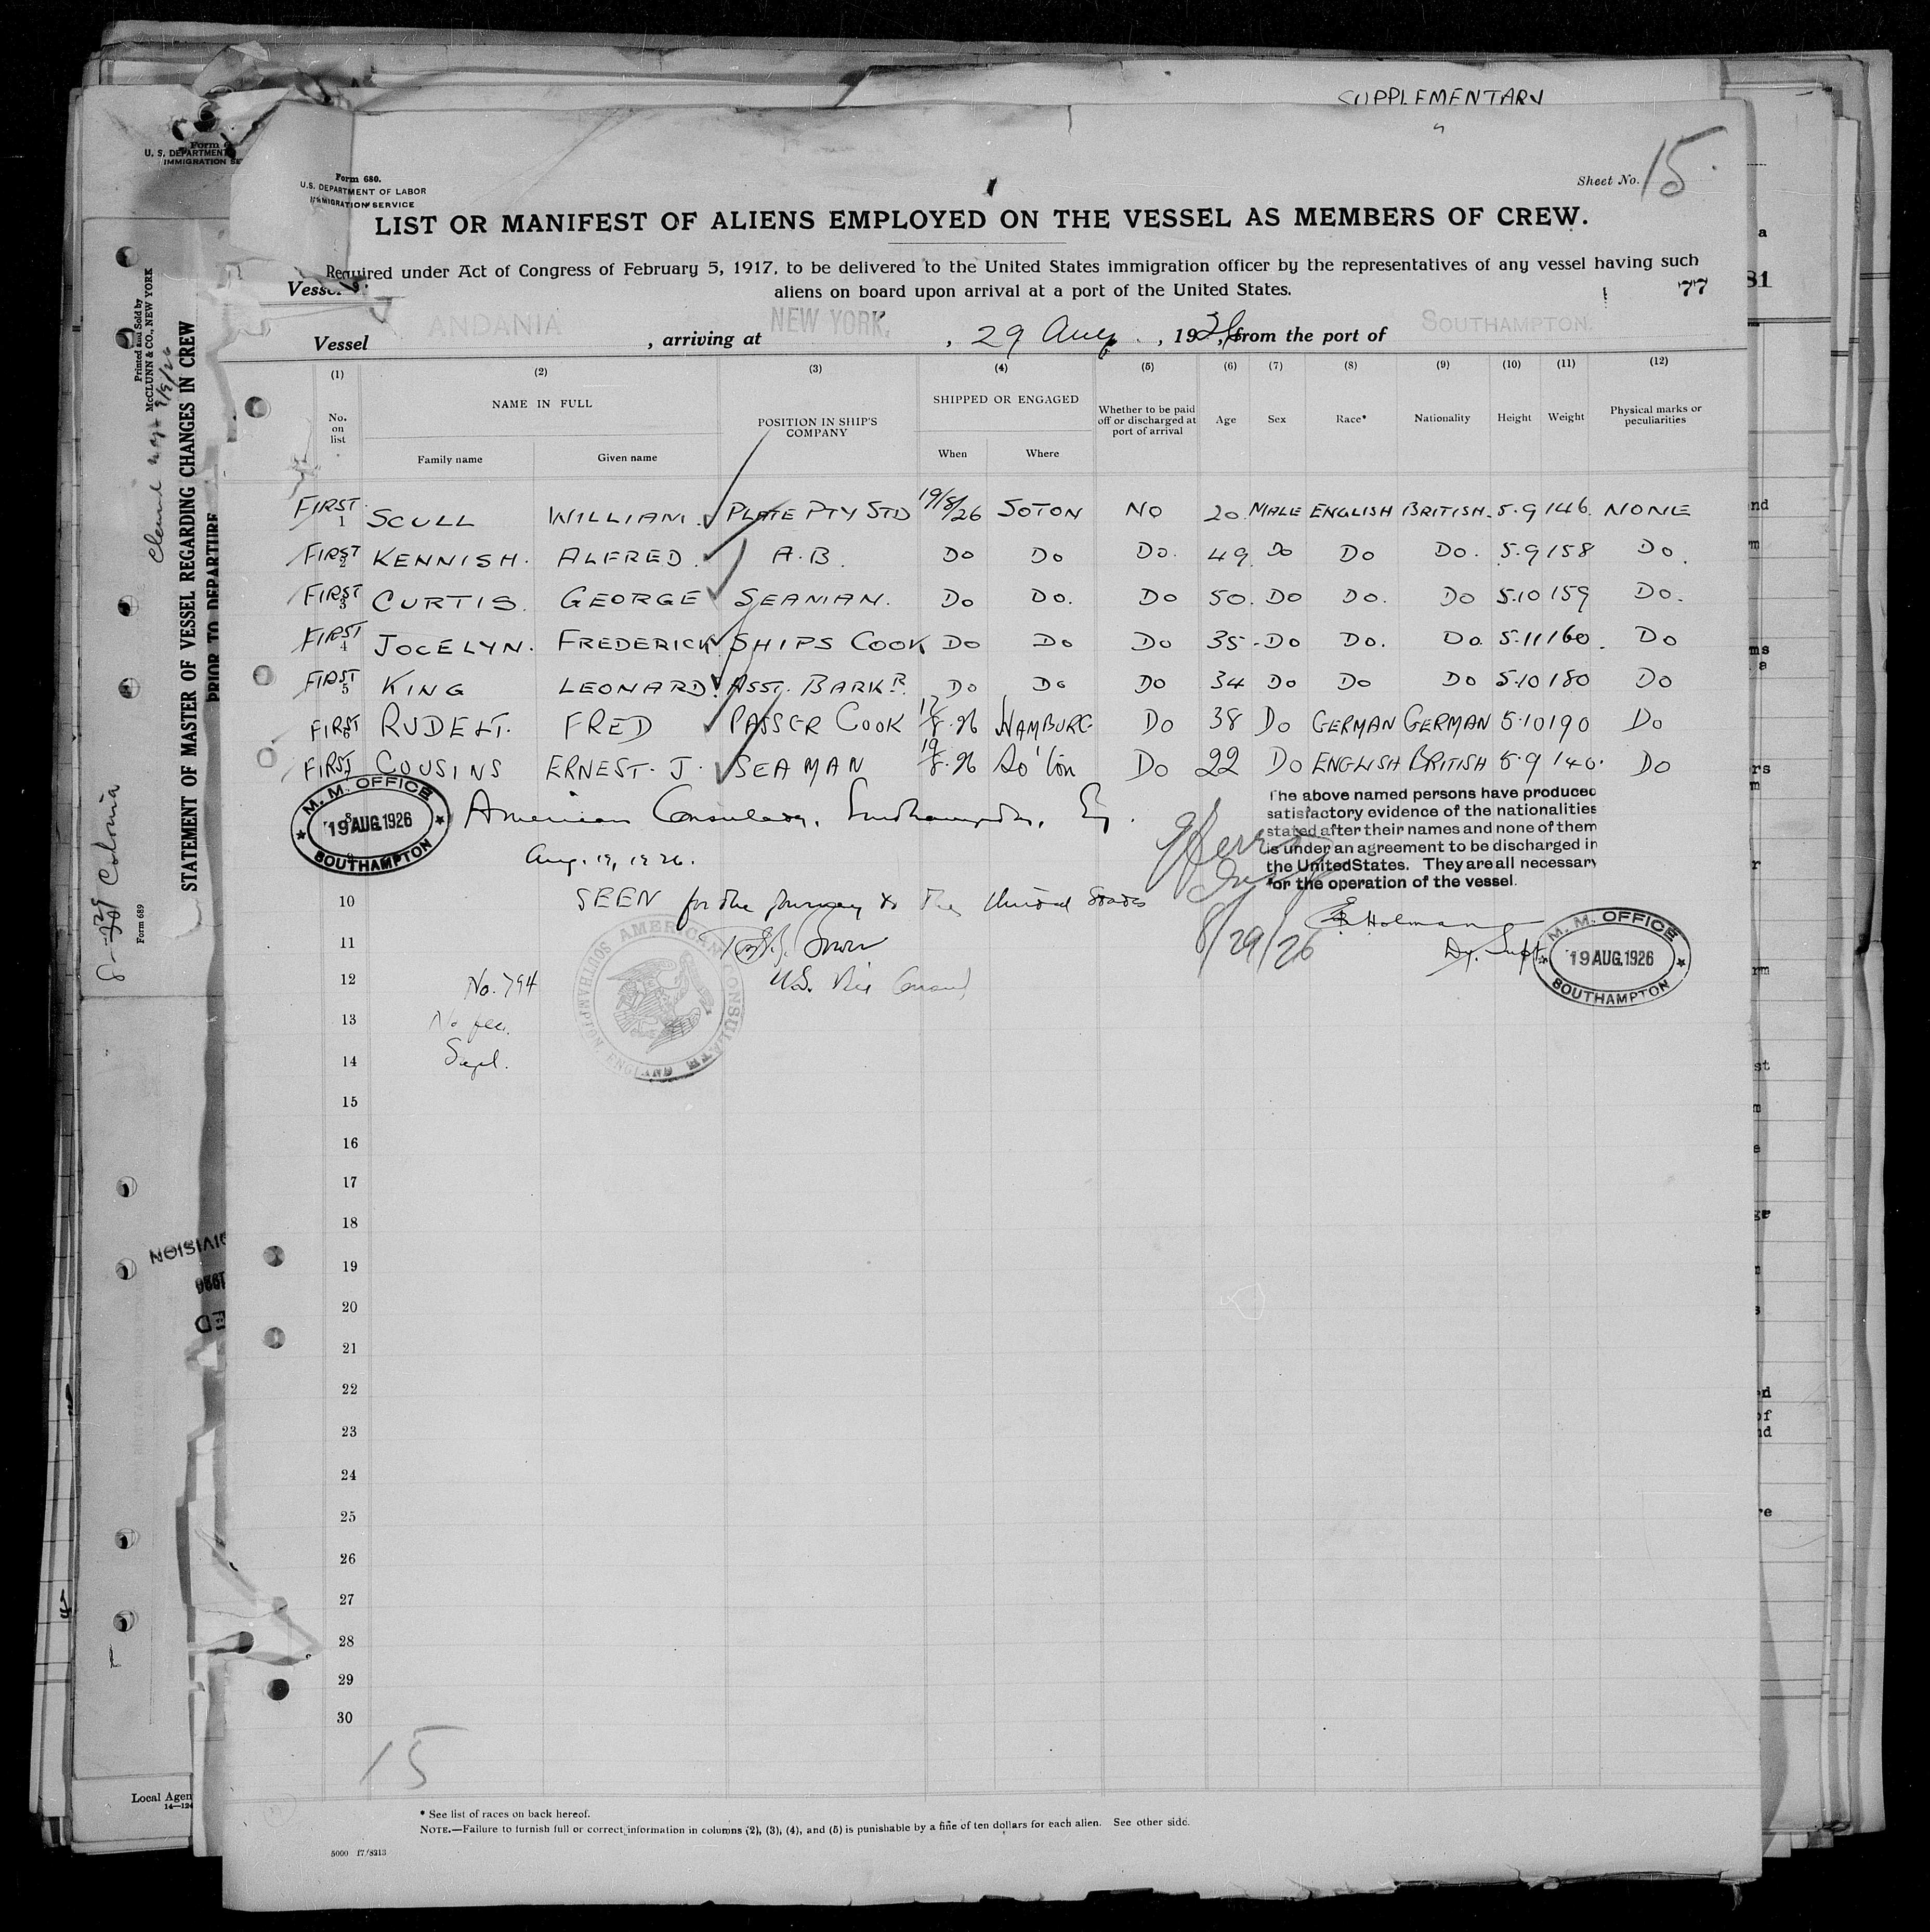 SUPPLEMENTARY
Form 680.
U.S. DEPARTMENT OF LABOR
IMMIGRATION SERVICE
Sheet No. 15
LIST OR MANIFEST OF ALIENS EMPLOYED ON THE VESSEL AS MEMBERS OF CREW.
Required under Act of Congress of February 5, 1917, to be delivered to the United States immigration officer by the representatives of any vessel having such
aliens on board upon arrival at a port of the United States.
77
Vessel ANDANIA, arriving at NEW YORK, 29 Aug, 1926, from the port of SOUTHAMPTON.
(1) (2) (3) (4) (5) (6) (7) (8) (9) (10) (11) (12)
No. on list NAME IN FULL POSITION IN SHIP'S COMPANY SHIPPED OR ENGAGED Whether to be paid off or discharged at port of arrival Age Sex Race* Nationality Height Weight Physical marks or peculiarities
Family name Given name When Where
FIRST 1 SCULL WILLIAM. PLATE PTY STD 19/8/26 SOTON NO 20 MALE ENGLISH BRITISH. 5.9 146 NONE
FIRST 2 KENNISH. ALFRED. A.B. DO DO DO. 49 DO DO DO. 5.9 158 DO.
FIRST 3 CURTIS. GEORGE SEAMAN. DO DO. DO 50. DO DO. DO 5.10 159 DO.
FIRST 4 JOCELYN. FREDERICK SHIPS COOK DO DO DO 35 DO DO. DO. 5.11 160. DO
FIRST 5 KING LEONARD. ASST. BARKR. DO DO DO 34 DO DO DO 5.10 180 DO
FIRST 6 RUDELT. FRED PASSGR COOK 17/8.26 HAMBURG DO 38 DO GERMAN GERMAN 5.10 190 DO
FIRST COUSINS ERNEST. J. SEAMAN 19/8.26 So'ton DO 22 DO ENGLISH BRITISH 5.9 140. DO
M. M. OFFICE
19 AUG. 1926
SOUTHAMPTON
American Consulate, Southampton, Eng.
Aug. 19, 1926.
The above named persons have produced
satisfactory evidence of the nationalities
stated after their names and none of them
is under an agreement to be discharged in
the United States. They are all necessary
for the operation of the vessel.
10 SEEN for the journey to the United States
8/29/26
Holman
Dy. Supt.
M. M. OFFICE
19 AUG. 1926
SOUTHAMPTON
11
12 No. 794 U.S. Vice Consul
AMERICAN CONSULATE
SOUTHAMPTON, ENGLAND
13 No fee.
14 Supl.
15
16
17
18
19
20
21
22
23
24
25
26
27
28
29
30
15
* See list of races on back hereof.
NOTE.—Failure to furnish full or correct information in columns (2), (3), (4), and (5) is punishable by a fine of ten dollars for each alien. See other side.
5000 17/8213
U. S. DEPARTMENT
IMMIGRATION SE
Printed and Sold by
McCLUNN & CO., NEW YORK
STATEMENT OF MASTER OF VESSEL REGARDING CHANGES IN CREW
PRIOR TO DEPARTURE
Form 689
Local Agen
14—124
81